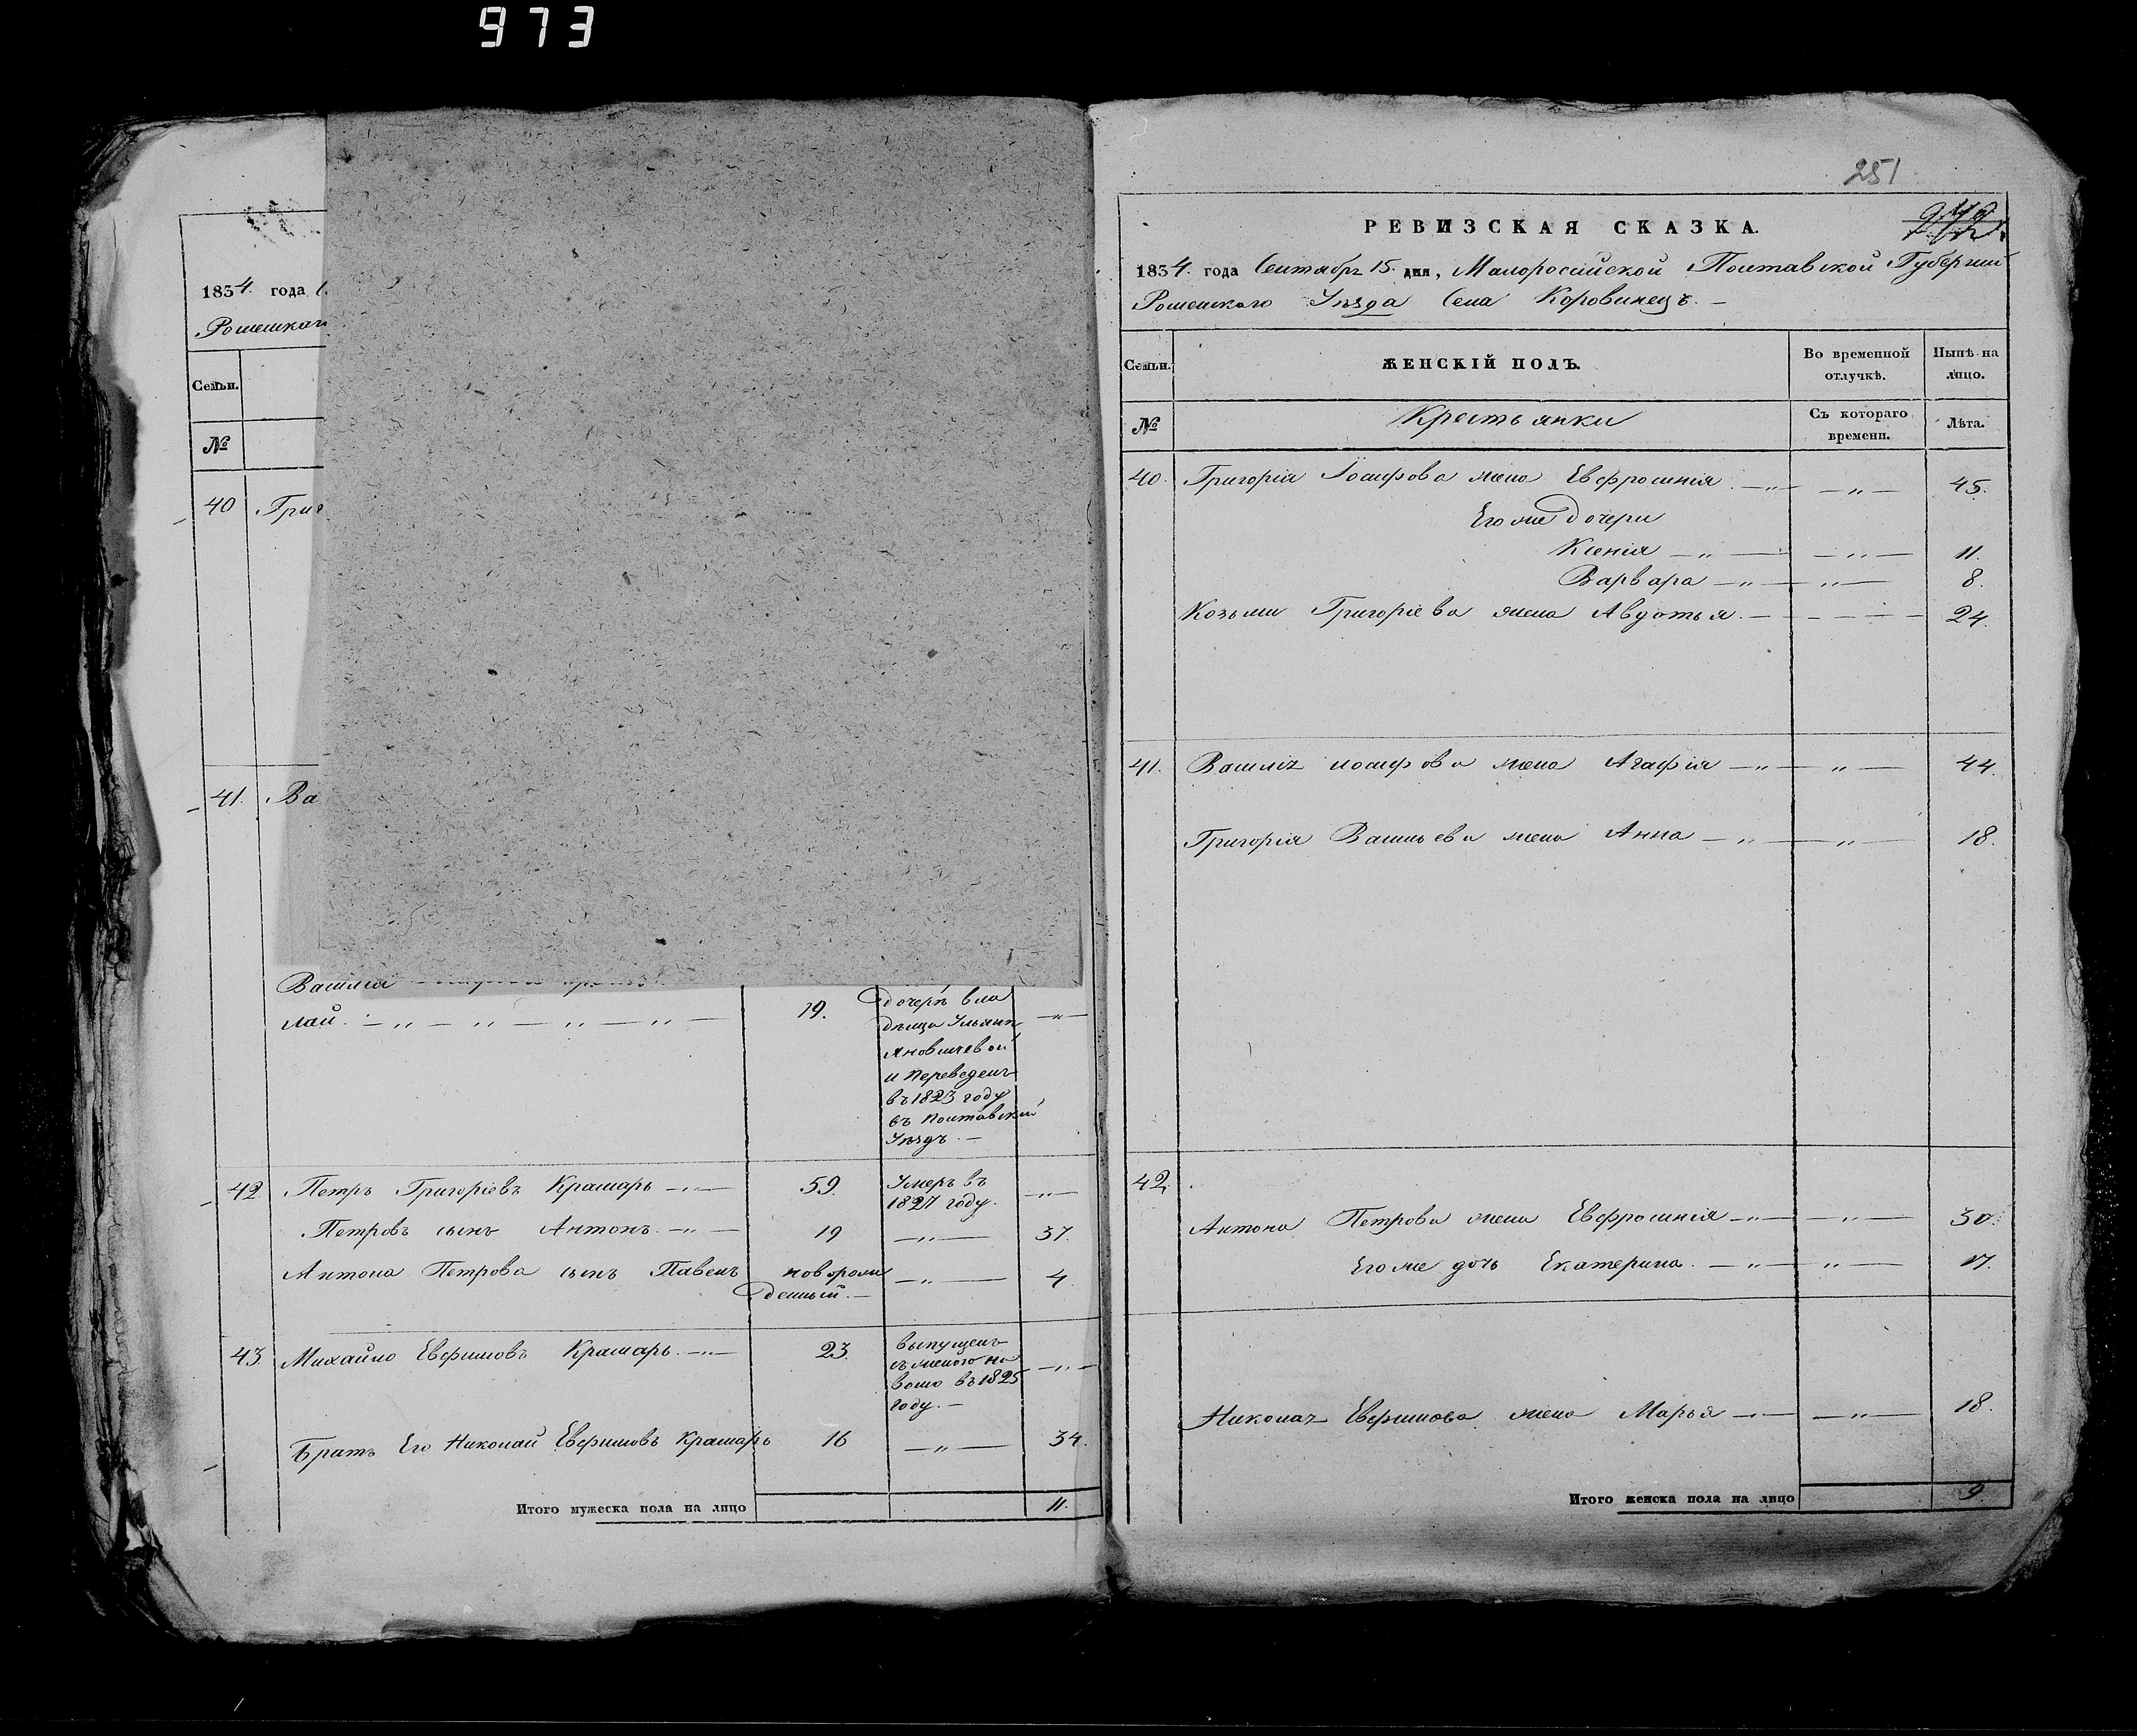 973
1834 года
Роменскаго
Семьи.
№
40 Григ
41. Ва
Василія
лай. 19. дочери вла
дельца Ульяни
Яновичевой
и переведенъ
въ 1823 году
въ Полтавскій
Уѣздъ.
42. Петръ Григоріевъ Крамарь 59. Умеръ въ
1827 году.
Петровъ сынъ Антонъ. 19 37.
Антона Петрова сынъ Павелъ новорож 4.
денный.
43. Михайло Евфимовъ Крамарь. 23. выпущенъ
съ женою на
волю въ 1825
году.
Братъ Его Николай Евфимовъ Крамарь 16 34.
Итого мужеска пола на лицо 11.
251
РЕВИЗСКАЯ СКАЗКА.
1834 года Сентябрь 15. дня, Малоросийской Полтавской Губерніи
Роменскаго Уѣзда Села Коровинецъ.
Семьи. ЖЕНСКІЙ ПОЛЪ. Во временной отлучкѣ. Нынѣ на лицо.
№ Крестьянки Съ котораго времени. Лѣта.
40. Григорія Іосифова жена Евфросинія 45.
Его же дочери
Ксенія 11.
Варвара 8.
Козьми Григоріева жена Авдотья. 24.
41. Василія Иосифова жена Агафія 44.
Григорія Васильева жена Анна 18.
42.
Антона Петрова жена Евфросинія 30.
Его же дочь Екатерина. 17.
Николая Евфимова жена Марья 18.
Итого женска пола на лицо 9.